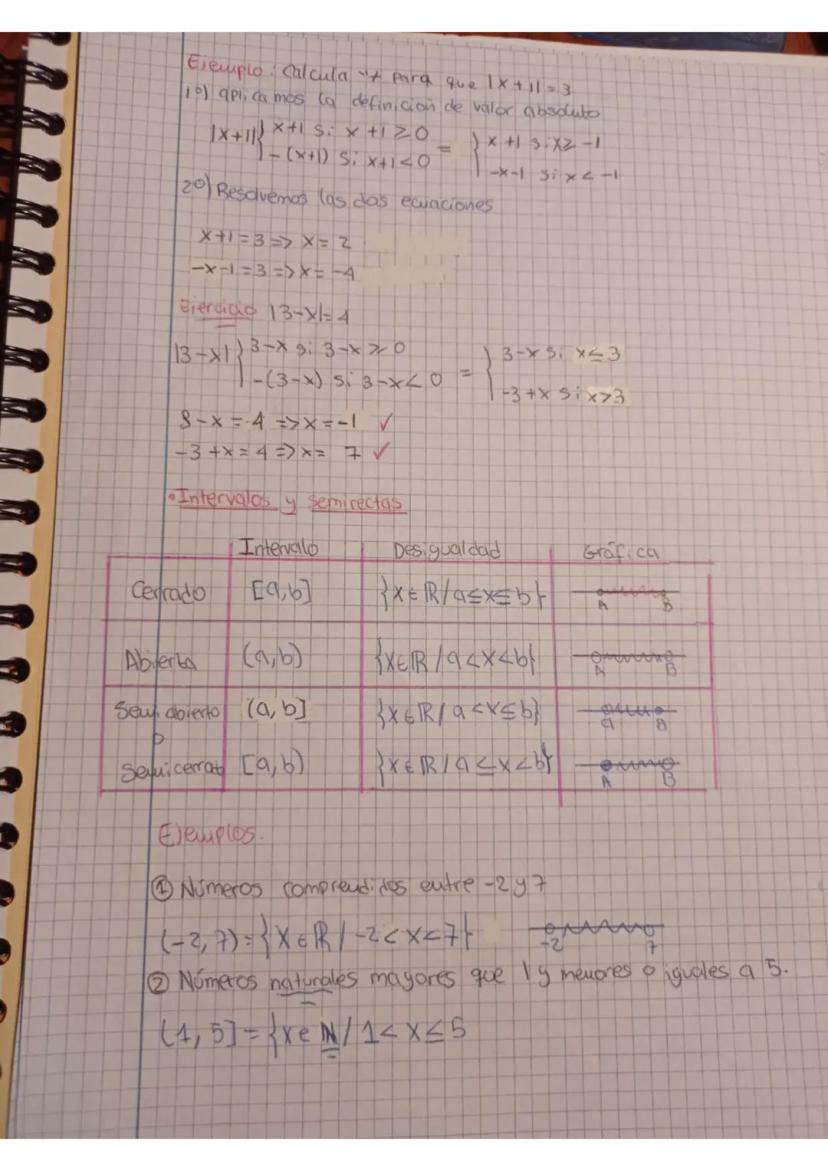 Ejemplo: Calcula "x" para que |x+1|=3
1º) aplicamos la definición de valor absoluto
|x+1| { x+1 si x+1≥0 = { x+1 si x≥-1
-(x+1) si x+1<0 -x-1 si x<-1
2º) Resolvemos las dos ecuaciones
x+1=3 => x=2
-x-1=3 => x=-4
Ejercicio |3-x|=4
|3-x| { 3-x si 3-x≥0 = { 3-x si x≤3
-(3-x) si 3-x<0 -3+x si x>3
3-x=4 => x=-1 ✓
-3+x=4 => x= 7 ✓
• Intervalos y semirectas
Intervalo Desigualdad Gráfica
Cerrado [a,b] {x∈ℝ/a≤x≤b} A B
Abierta (a,b) {x∈ℝ/a<x<b} A B
Semi abierto (a,b] {x∈ℝ/a<x≤b} a B
o
semicerrado [a,b) {x∈ℝ/a≤x<b} A B
Ejemplos.
① Números comprendidos entre -2 y 7
(-2,7)={x∈ℝ/-2<x<7} -2 7
② Números naturales mayores que 1 y menores o iguales a 5.
(1,5]={x∈ℕ/1<x≤5